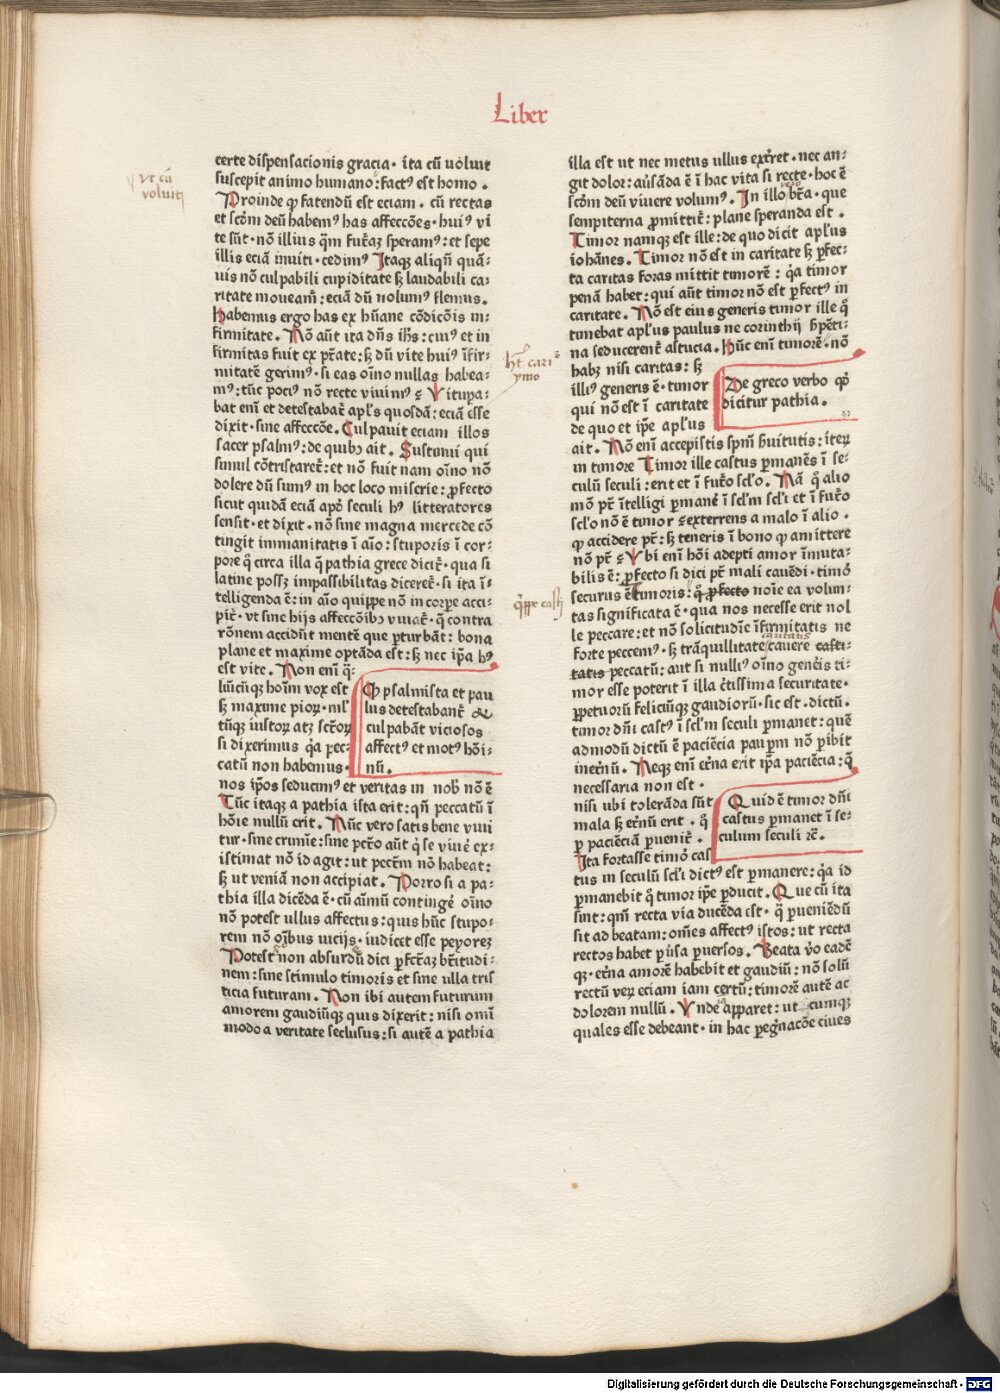 Liber
certe dispensacionis gracia· ita cũ uoluit
suscepit animo humano: fact⁹ est homo.
Proinde ꝙ fatendũ est eciam· cũ rectas
et scďm deũ habem⁹ has affeccões· hui⁹ vi
te sũt· nõ illius qm̃ futurã speram⁹: et sepe
illis eciã inuiti· cedim⁹ Itaqꝫ aliqñ quã-
uis nõ culpabili cupiditate sꝫ laudabili ca-
ritate moueam̃: eciã dũ nolum⁹ flemus.
Habemus ergo has ex hũane cõdicõis in-
firmitate. Nõ aũt ita dñs ihs̃: cui⁹ et in
firmitas fuit ex ptãte: sꝫ dũ vite hui⁹ ĩfir-
mitatẽ gerim⁹· si eas oĩno nullas habea-
m⁹: tũc poci⁹ nõ recte viuim⁹ ꝛ Vitupa-
bat enĩ et detestabať apl̃s quosdã: eciã esse
dixit· sine affeccõe. Culpauit eciam illos
sacer psalm⁹: de quibꝫ ait. Sustinui qui
simul cõtristareť: et nõ fuit nam oĩno nõ
dolere dũ sum⁹ in hoc loco miserie: ꝓfecto
sicut quidã eciã apď seculi h⁹ litteratores
sensit· et dixit· nõ sine magna mercede cõ
tingit immanitatis ĩ aĩo: stuporis ĩ cor-
pore q̃ circa illa q̃ pathia grece diciť· qua si
latine possꝫ impassibilitas dicereť· si ita ĩ-
telligenda ẽ: in aĩo quippe nõ in corpe acci-
piť· vt sine hijs affeccõibꝫ viuať· q̃ contra
rõnem accidũt mentẽ que pturbãt: bona
plane et maxime optãda est: sꝫ nec ip̃a h⁹
est vite. Non enĩ q̃-
liũcũqꝫ hoĩm vox est
sꝫ maxime pioꝝ· ml̃
tũqꝫ iustoꝝ atꝫ sctõꝝ
si dixerimus qa pec-
catũ non habemus·
ꝙ psalmista et pau
lus detestabanť &
culpabãt viciosos
affect⁹ et mot⁹ hõi-
nũ.
nos ip̃os seducim⁹ et veritas in nob̃ nõ ẽ
Tũc itaqꝫ a pathia ista erit: qñ peccatũ ĩ
hõie nullũ erit. Nũc vero satis bene viui
tur· sine crimĩe: sine pctõ aũt q̃ se viuẽ ex-
istimat nõ id agit: ut pectm̃ nõ habeat:
sꝫ ut veniã non accipiat. Porro si a pa-
thia illa dicẽda ẽ· cũ aĩmũ contingẽ oĩno
nõ potest ullus affectus: quis hũc stupo-
rem nõ oĩbus uicijs· iudicet esse peyoreꝫ
Potest non absurdũ dici pfctãꝫ bt̃itudi-
nem: sine stimulo timoris et sine ulla tris
ticia futuram. Non ibi autem futurum
amorem gaudiũqꝫ quis dixerit: nisi omĩ
modo a veritate seclusus: si autẽ a pathia
illa est ut nec metus ullus extret· nec an-
git dolor: aũsãda ẽ ĩ hac vita si recte· hoc ẽ
scďm deũ viuere volum⁹. In illo bt̃a· que
sempiterna ꝓmittiť: plane speranda est.
Timor namqꝫ est ille: de quo dicit apl̃us
iohãnes. Timor nõ est in caritate sꝫ pfec-
ta caritas foras mittit timorẽ: qa timor
penã habet: qui aũt timor nõ est pfect⁹ in
caritate. Nõ est eius generis timor ille q̃
timebat apl̃us paulus ne corinthij serpẽti-
na seducerenť astucia. Hũc enĩ timorẽ· nõ
habꝫ nisi caritas: sꝫ
illi⁹ generis ẽ· timor
qui nõ est ĩ caritate
de quo et ip̃e apl̃us
De greco verbo ꝙ
dicitur pathia.
ait. Nõ enĩ accepistis spm̃ ſuitutis: iteꝝ
in timore Timor ille castus pmanẽs ĩ se-
culũ seculi: erit et ĩ futõ scl̃o. Nã q̃ alio
mõ pt̃ ĩtelligi pmanẽ ĩ scl̃m scl̃i et ĩ futõ
scl̃o nõ ẽ timor ꝛ exterrens a malo ĩ alio.
ꝙ accidere pt̃: sꝫ teneris ĩ bono ꝙ amittere
nõ pt̃ ꝛ Vbi enĩ hõi adepti amor ĩmuta-
bilis ẽ: ꝓfecto si dici pt̃ mali cauẽdi· timõ
securus ẽ timoris: q̃ ꝓfecto noĩe ea volun-
tas significata ẽ· qua nos necesse erit nol
le peccare: et nõ solicitudĩe ĩfirmitatis ne
forte peccem⁹· sꝫ trãquillitate cauere casti-
tatis peccatũ: aut si nulli⁹ oĩno gen̄ẽis ti-
mor esse poterit ĩ illa ct̃issima securitate·
ꝑpetuorũ feliciũqꝫ gaudiorũ· sic est· dictũ·
timor dñi cast⁹ ĩ scl̃m seculi pmanet: quẽ
admodũ dictũ ẽ paciẽcia paupm nõ pibit
ineťnũ. Neqꝫ enĩ eťna erit ip̃a paciẽcia: q̃
necessaria non est·
nisi ubi tolerãda sũt
mala sꝫ eťnũ erit· q̃
p paciẽciã pueniť.
Ita fortasse timõ cas
Quid ẽ timor dñi
castus pmanet ĩ se-
culum seculi ꝛc̃.
tus in seculũ scl̃i dict⁹ est pmanere: qa id
pmanebit q̃ timor ip̃e pducit. Que cũ ita
sint: qm̃ recta via ducẽda est· q̃ pueniẽdũ
sit ad beatam: om̃es affect⁹ istos: ut recta
rectos habet puĩsa puersos. Beata v̾o eadẽ
qꝫ· eťna amorẽ habebit et gaudiũ: nõ solũ
rectũ veꝝ eciam iam certũ: timorẽ autẽ ac
dolorem nullũ. Vnde apparet: ut cumqꝫ
quales esse debeant· in hac pegñacõe ciues
vt cũ
voluit